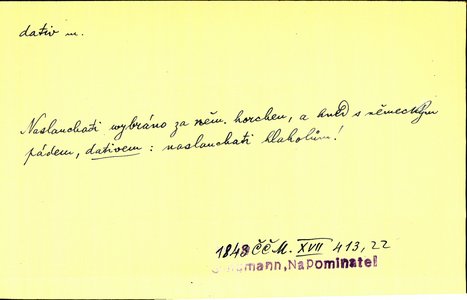 dativ m.
Naslouchati vybráno za něm. horchen, a hned s německým
pádem, dativem : naslouchati hlaholům!
1843 ČČM. XVII 413, 22
Jungmann, Napominatel